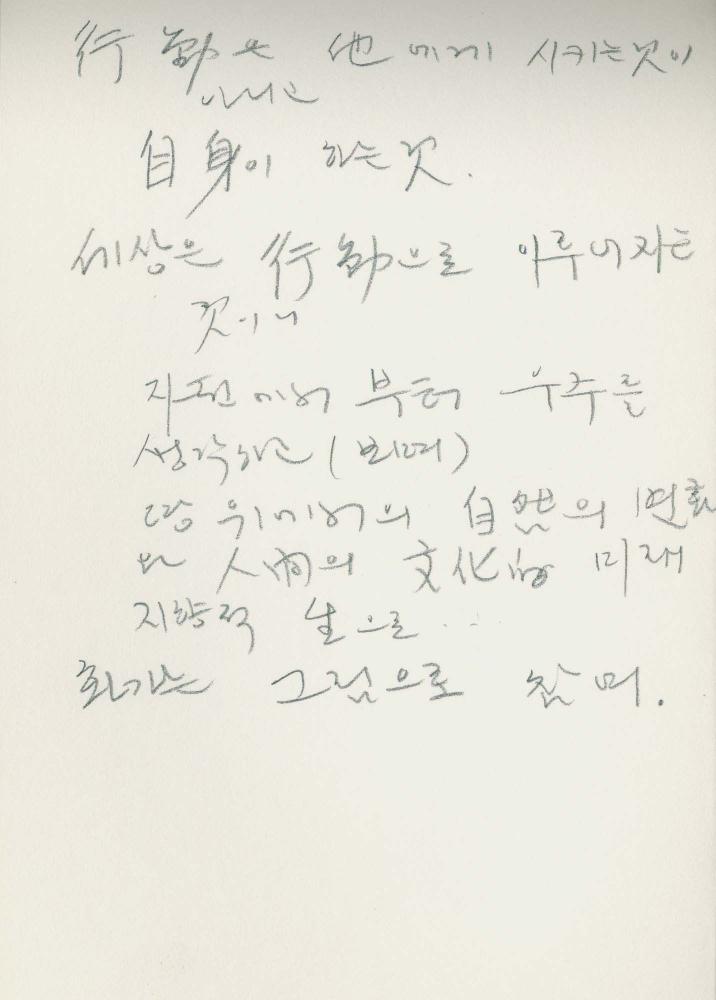 行動은 他에게 시키는것이
아니고
自身이 하는것.
세상은 行動으로 이루어지는
것이니
지전에서 부터 우주를
생각하고 (비며)
땅 위에서의 自然의 변화
와 人間의 文化的 미래
지향적 生으로...
화가는 그림으로 참여.